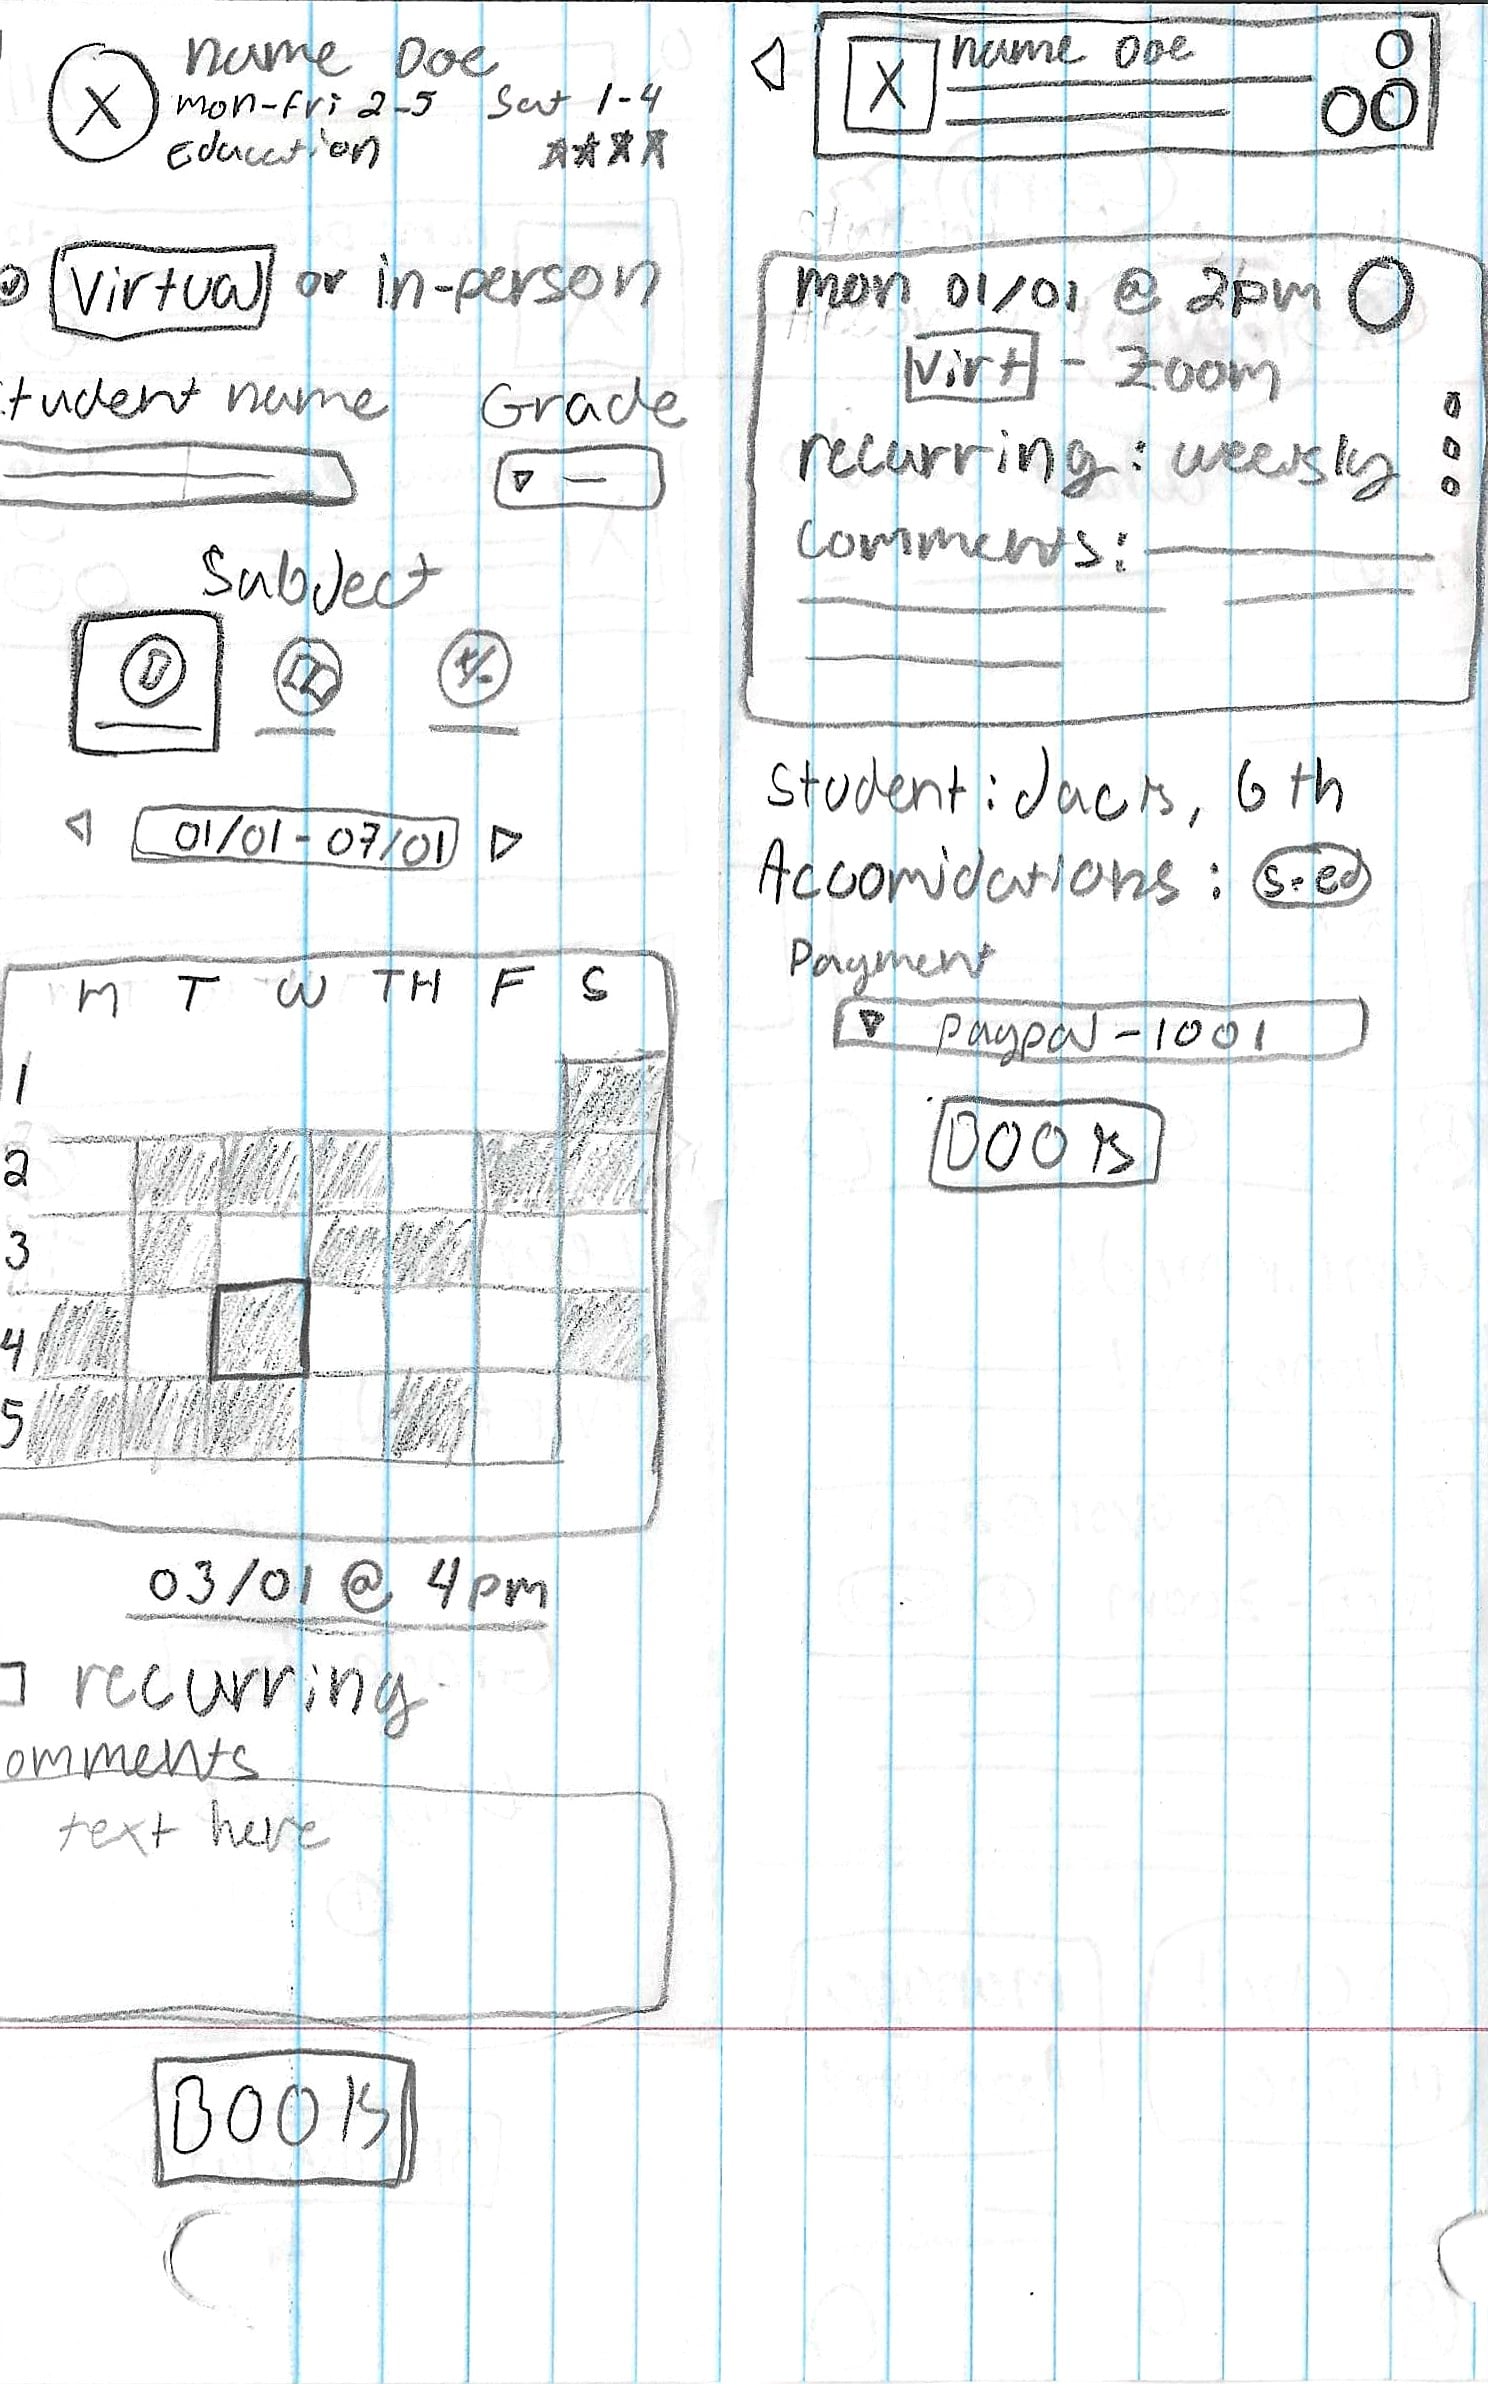 Name Doe
mon-fri 2-5 Sat 1-4
Education
Virtual or in-person
tudent name Grade
Subject
01/01 - 07/01
M T W TH F S
1
2
3
4
5
03/01 @ 4pm
recurring
omments
text here
BOOK
name Doe
mon 01/01 @ 2pm
Virt - Zoom
recurring: weekly
comments:
Student: Jack, 6th
Accomidations: s-ed
Payment
paypal - 1001
BOOK